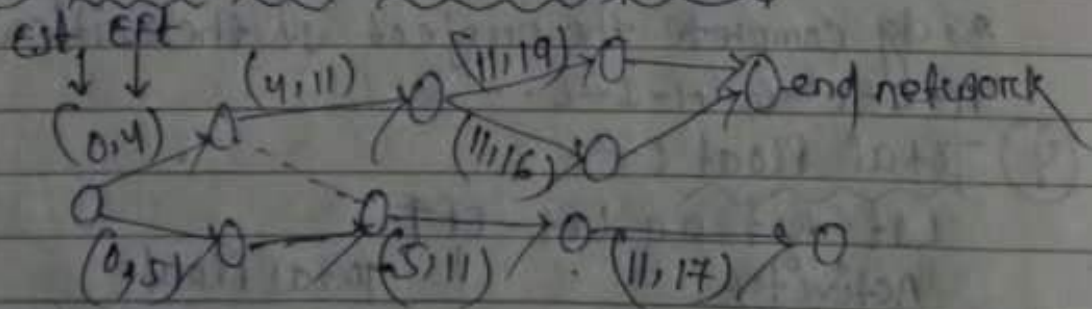 Est, Eft
(4,11)
(11,19)
end network
(0,4)
(11,16)
(0,5)
(5,11)
(11,17)